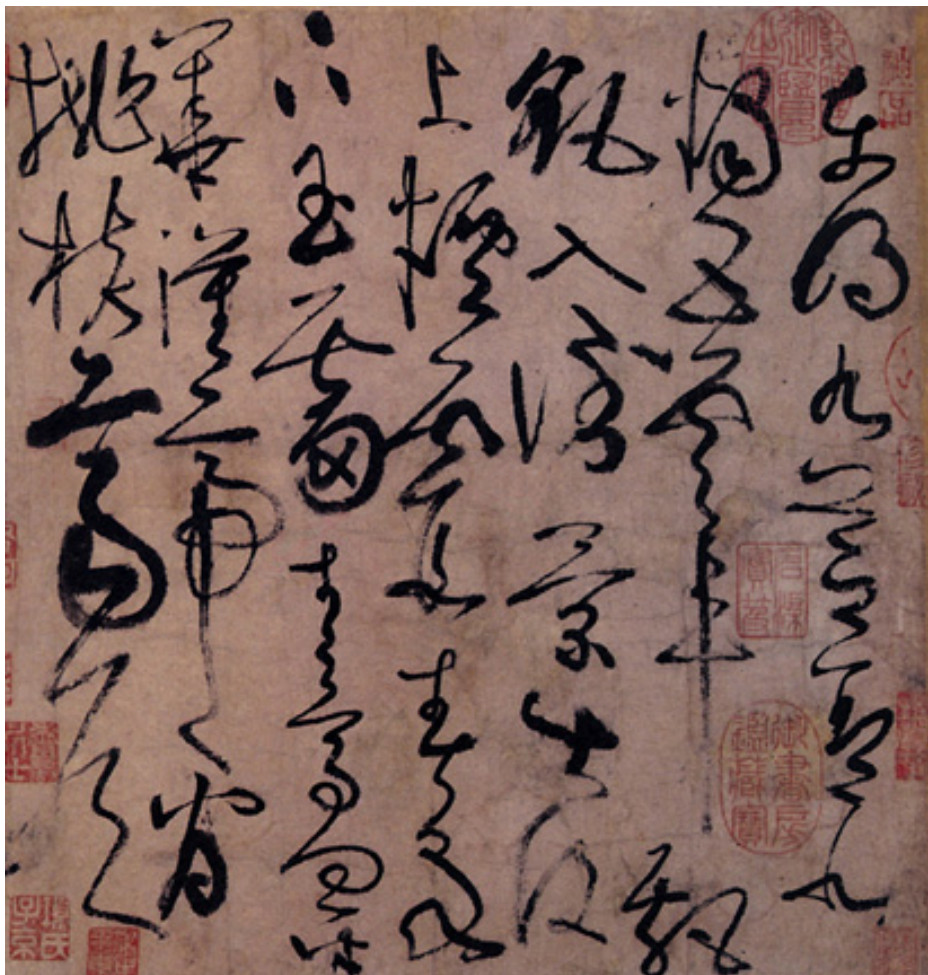 東明九芝蓋北
燭五雲車飄
飖入倒景出没
上煙霞春泉
下玉霤青鳥向金
華漢帝看
桃核齊侯